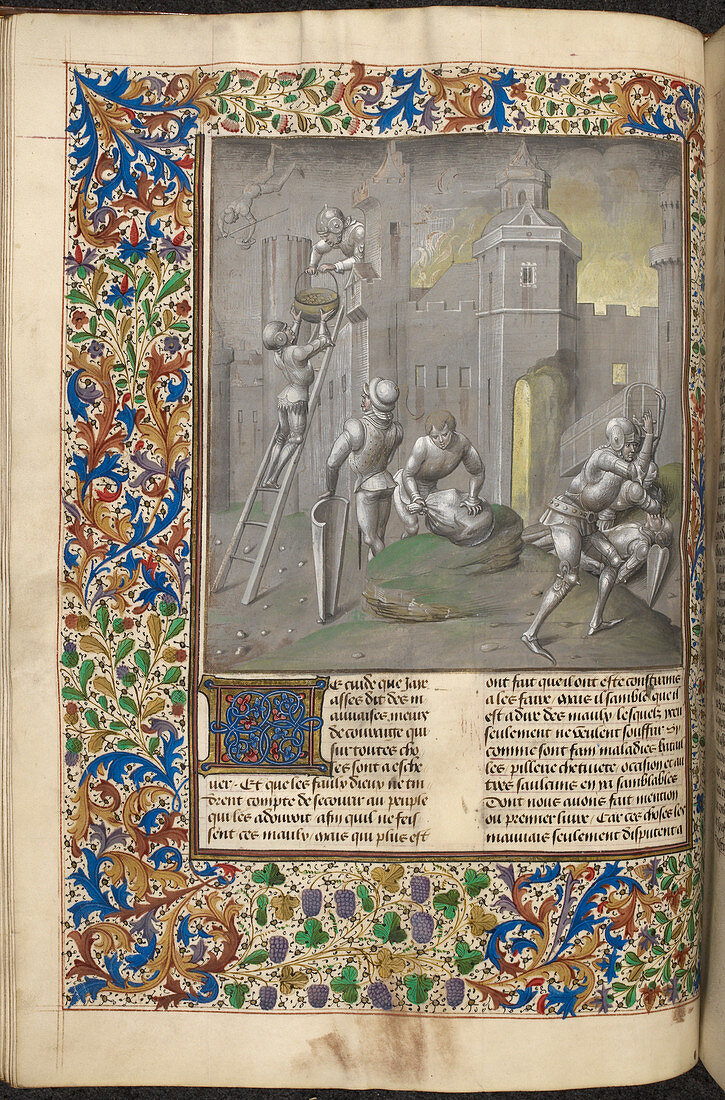 e cuide que jay
asses dit des m
auuaises meurs
de couuaige qui
sur toutes cho
ses sont a esche
uer. Et que les faulx dieux ne tin
drent compte de secourir au peuple
qui les adouroit afin quil ne feis
sent ces maulx mais qui plus est
ont fait quil ont este constrains
a les faire. Mais il samble que il
est a dire des maulx lesquelz
seulement ne veulent souffrir. Sy
comme sont fain maladies
les pillerie chetiuete, occasion et au
tres
Dont nous auons fait mention
ou premier liure. Car ces choses les
mauuais seulement disputent a